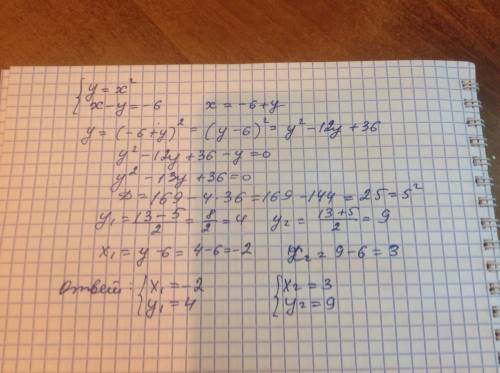 { y = x²
x - y = -6     x = -6 + y
y = (-6 + y)² = (y - 6)² = y² - 12y + 36
y² - 12y + 36 - y = 0
y² - 13y + 36 = 0
D = 169 - 4·36 = 169 - 144 = 25 = 5²
y₁ = (13 - 5)/2 = 8/2 = 4     y₂ = (13 + 5)/2 = 9
x₁ = y - 6 = 4 - 6 = -2     x₂ = 9 - 6 = 3
Ответ: { x₁ = -2     { x₂ = 3
y₁ = 4     y₂ = 9